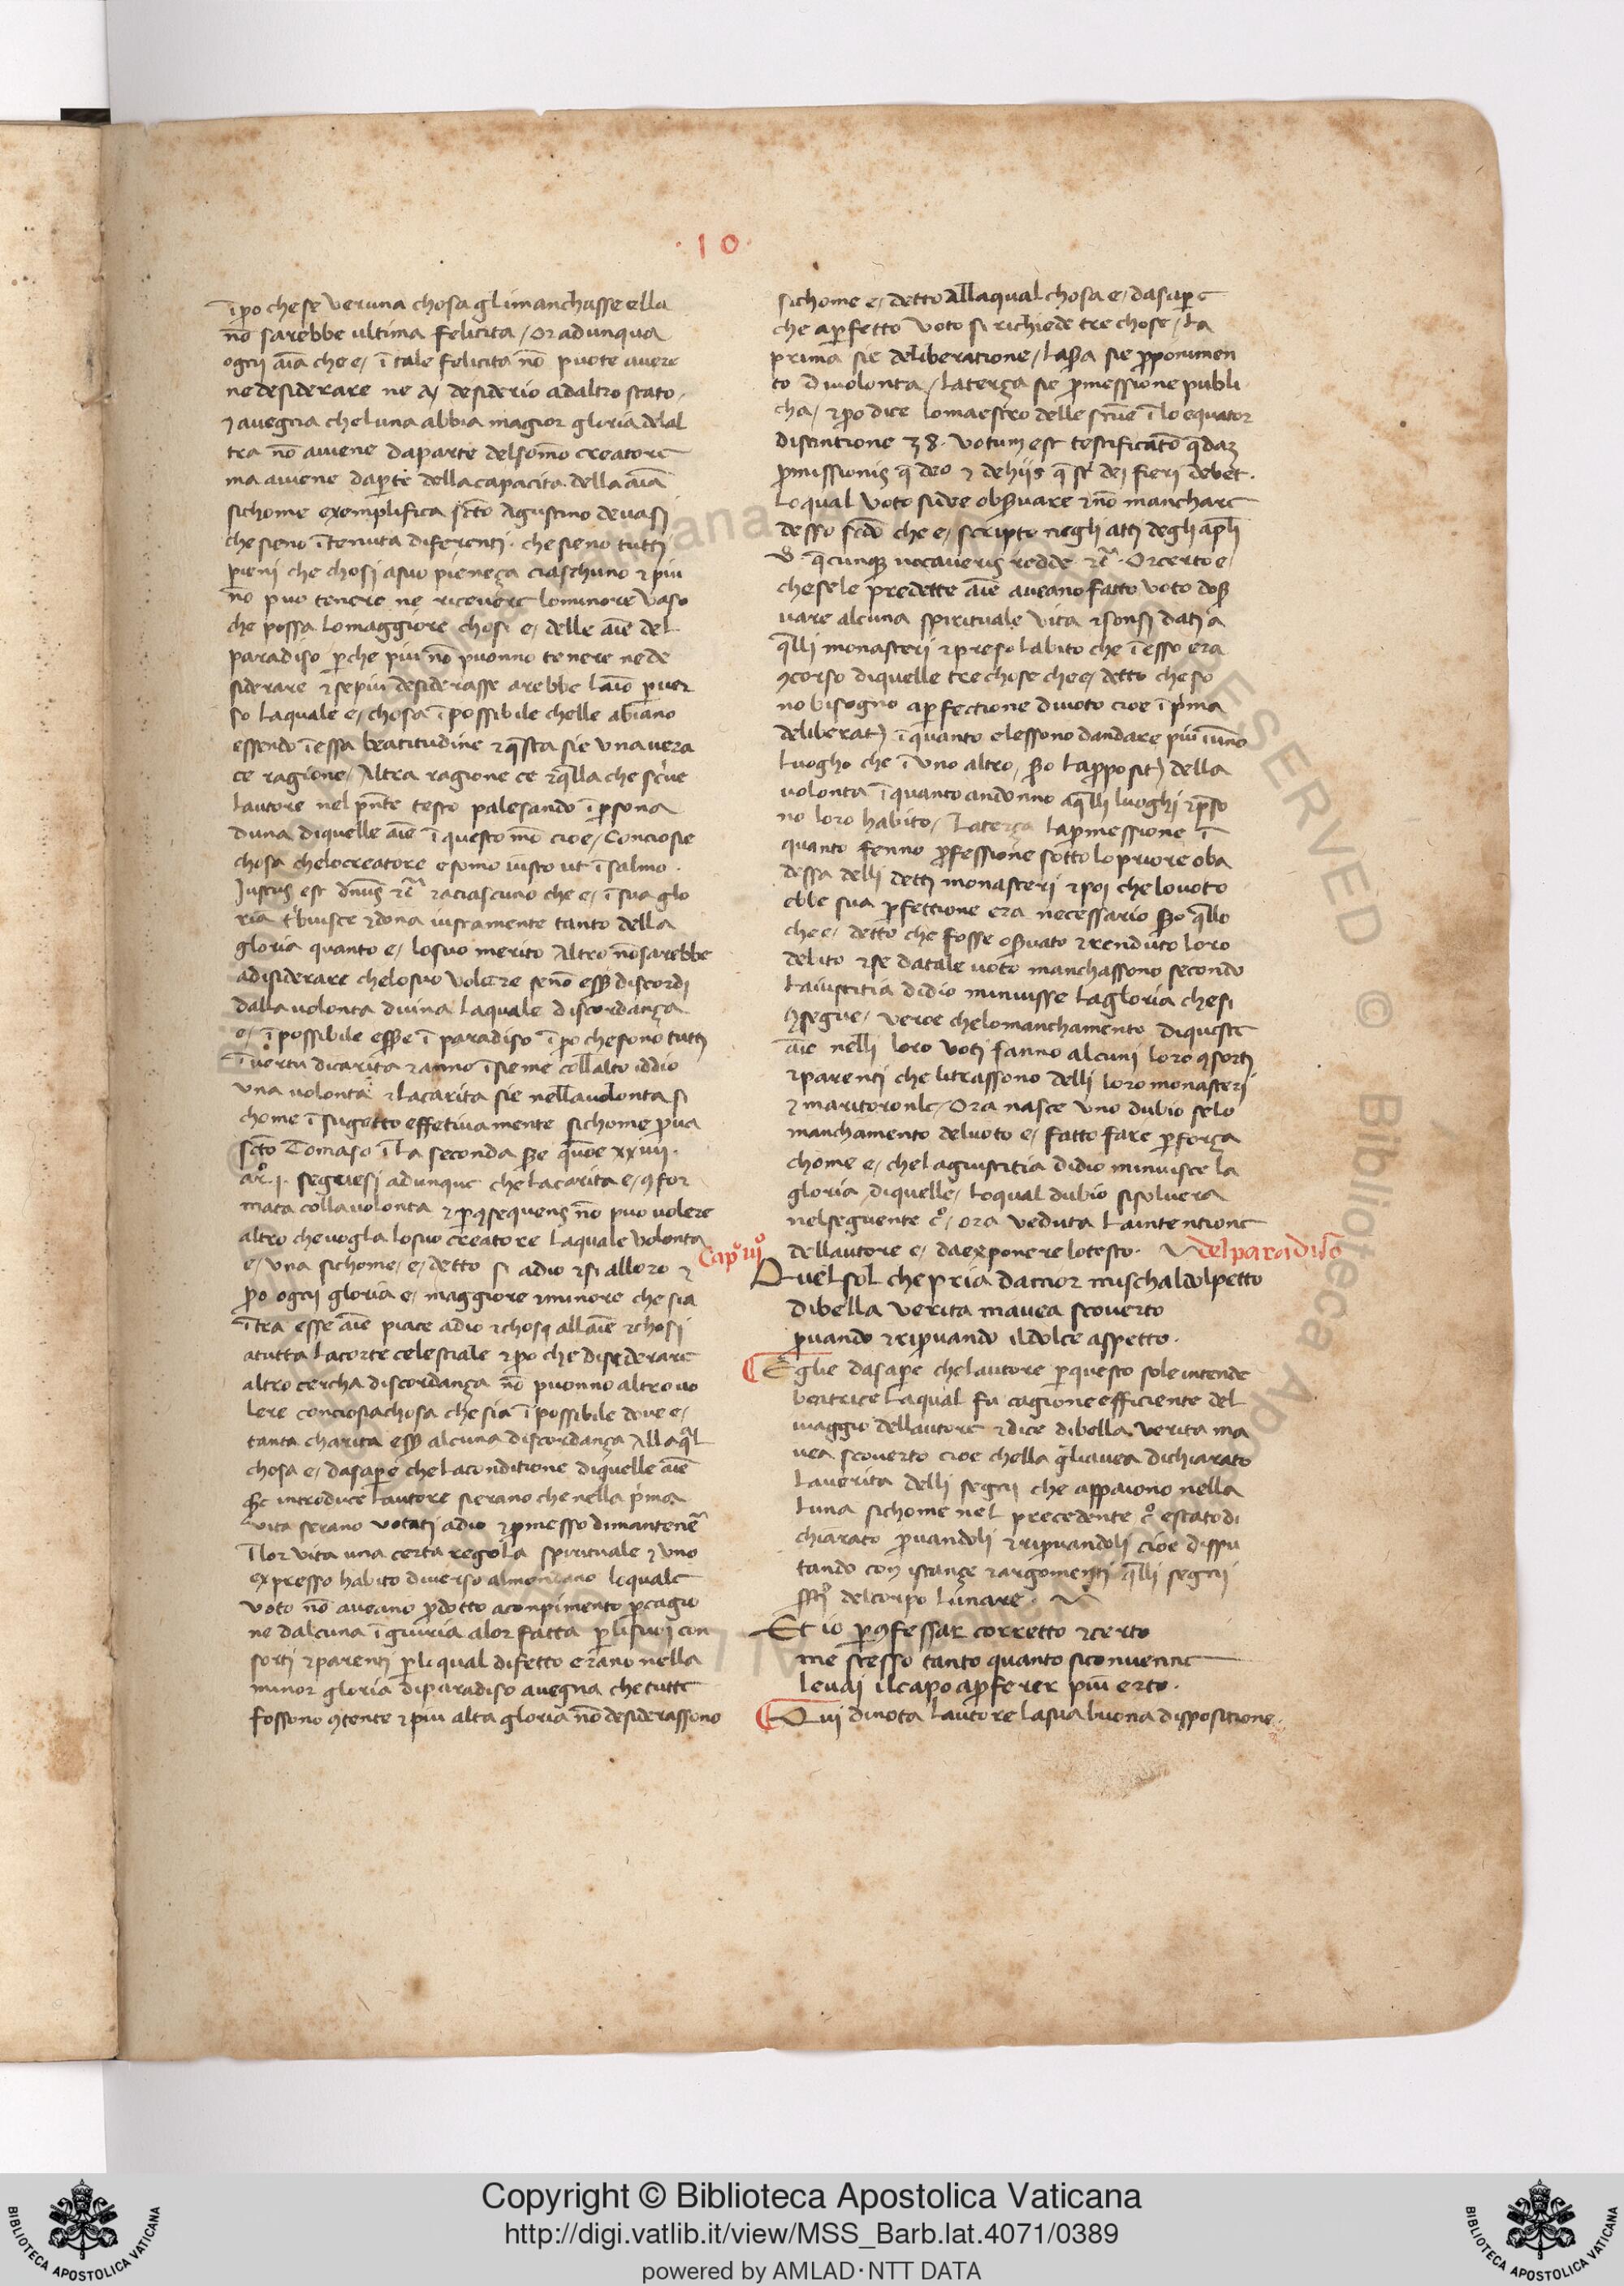 ·10·
ī po che se veruna chosa gli manchasse ella
nō sarebbe ultima felicita / Or adunqua
ogni aīa che e / ī tale felicita nō puote avere
ne desiderare ne desiderio ad altro stato /
⁊ avegna che luna abbia magior gloria del al
tra nō aviene da parte del somo creatore
ma aviene da parte della capacita della aīa
sichome exemplifica scto Agustino de vasi
che sieno ī tenuta diferenti · che sieno tutti
pieni che chosi a suo pieneça ciaschuno ⁊ piu
nō puo tenere ne ricevere lo minore vaso
che possa lo maggiore chosi e / delle aīe del
paradiso perche piu nō puonno tenere ne de
siderare ⁊ se piu desiderasse arebbe laīo per ver
so la quale e / chosa ī possibile chelle abiano
essendo ī essa beatitudine ⁊ q̄sta sie una vera
ce ragione / Altra ragione ce ⁊ q̄lla che scive
lautore nel pn̄te testo palesando ī persona
duna di quelle aīe ī questo mō cioe / Conciosie
chosa che lo creatore e somo iusto ut ī salmo ·
Iustus est dn̄us ⁊c̄ ⁊ a ciascuno che e / ī sua glo
ria tribuisce ⁊ dona iustamente tanto della
gloria quanto e / lo suo merito Altro nō sarebbe
a disiderare che lo suo volere se nō esser discordi
dalla volonta divina la quale discordança
e / ī possibile essere ī paradiso ī po che sono tutti
ī vertu di carita ⁊ anno ī sieme coll alto iddio
una volonta ⁊ la carita sie nella volonta si
chome ī sugetto effetivamente sichome pruova
scto Tomaso ī la seconda
seguesi adunque che la carita e / ꝯfor
mata colla volonta ⁊ per ꝯsequens nō puo volere
altro che vogla lo suo creatore la quale volonta
e / una sichome / e / detto si a dio ⁊ si alloro ⁊
po ogni gloria e / maggiore ⁊ minore che sia
ītra esse aīe piace a dio ⁊ chosi all aīe ⁊ chosi
a tutta la corte celestiale ⁊ po che disiderare
altro cercha discordança nō puonno altro vo
lere conciosiachosa che sia ī possibile dove e /
tanta charita esser alcuna discordança Alla qual
chosa e / da sapere che la conditione di quelle aīe
introduce lautore si erano che nella pima
vita serano votati a dio ⁊ pmesso di mantenere
ī lor vita una certa regola spirituale ⁊ uno
expresso habito diverso al mondano lo quale
voto nō aveano pdotto a conpimento per cagio
ne dalcuna ī giuria a lor fatta per li suoi con
sorti ⁊ parenti per lo qual difetto erano nella
minor gloria di paradiso avegna che tutte
fossono ꝯtente ⁊ piu alta gloria nō desiderassono
sichome e / detto Alla qual chosa e / da sapere
che a perfetto voto si richiede tre chose / La
prima sie deliberatione / la secōda sie pponimen
to di volonta / la terça sie pmessione publi
cha / ⁊ po dice lo maestro delle ī lo
distintione 38 · Votum est testificato q̄daz
pmissionis q̄ deo ⁊ de hiis q̄ dei fieri debet ·
Lo qual voto si dee observare ⁊ nō manchare
desso che e / scripto negli atti degli apli
q̄cunq voraveris redde ⁊c̄ · Or certo e /
che se le predette aīe aveano fatto voto dobser
vare alcuna spirituale vita ⁊ sonsi dati a
q̄lli monasteri ⁊ preso labito che ī esso era
ꝯcorso di quelle tre chose che e / detto che so
no bisogno a perfectione di voto cioe ī pima
ī quanto elessono dandare piu ī uno
luogho che ī uno altro / della
volonta ī quanto andonno a q̄lli luoghi ⁊ preso
no loro habito / La terça la pmessione ī
quanto fenno pfessione sotto lo priore o ba
dessa delli detti monasteri ⁊ poi che lo voto
ebbe sua perfettione era necessario q̄llo
che e / detto che fosse observato ⁊ renduto loro
debito ⁊ se da tale voto manchassono secondo
la iustitia di dio minuisse la gloria che si
ꝯsegue / vero e che lo manchamento di queste
aīe nelli loro voti fanno alcuni loro ꝯsorti
⁊ parenti che li trassono delli loro monasteri
⁊ maritoronle / Ora nasce uno dubio se lo
manchamento del voto e / fatto fare per força
chome e / che la giustitia di dio minuisce la
gloria di quelle / lo qual dubio si solvera
nel seguente c° / ora veduta la intentione
dell autore e / da exponere lo testo · del paradiso
Cap° iii°
Quel sol che pria damor mi schaldo l petto
di bella verita mavea scoverto
pruovando ⁊ ripruovando il dolce aspetto ·
Eglie da sapere che lautore per questo sole intende
beatrice la qual fu cagione efficiente del
viaggio dell autore ⁊ dice di bella verita ma
vea scoverto cioe chella gli avea dichiarato
la verita delli segni che appaiono nella
luna sichome nel precedente c° e stato di
chiarato pruovandoli ⁊ ripruovandoli cioe dispu
tando con istançe ⁊ argomenti q̄lli segni
del corpo lunare ·
Et io per ꝯfessar corretto ⁊ certo
me stesso tanto quanto si convenne
levai il capo a proferer piu erto ·
Qui dinota lautore la sua buona dispositione ·
Copyright © Biblioteca Apostolica Vaticana
http://digi.vatlib.it/view/MSS_Barb.lat.4071/0389
powered by AMLAD·NTT DATA
BIBLIOTECA APOSTOLICA VATICANA
BIBLIOTECA APOSTOLICA VATICANA